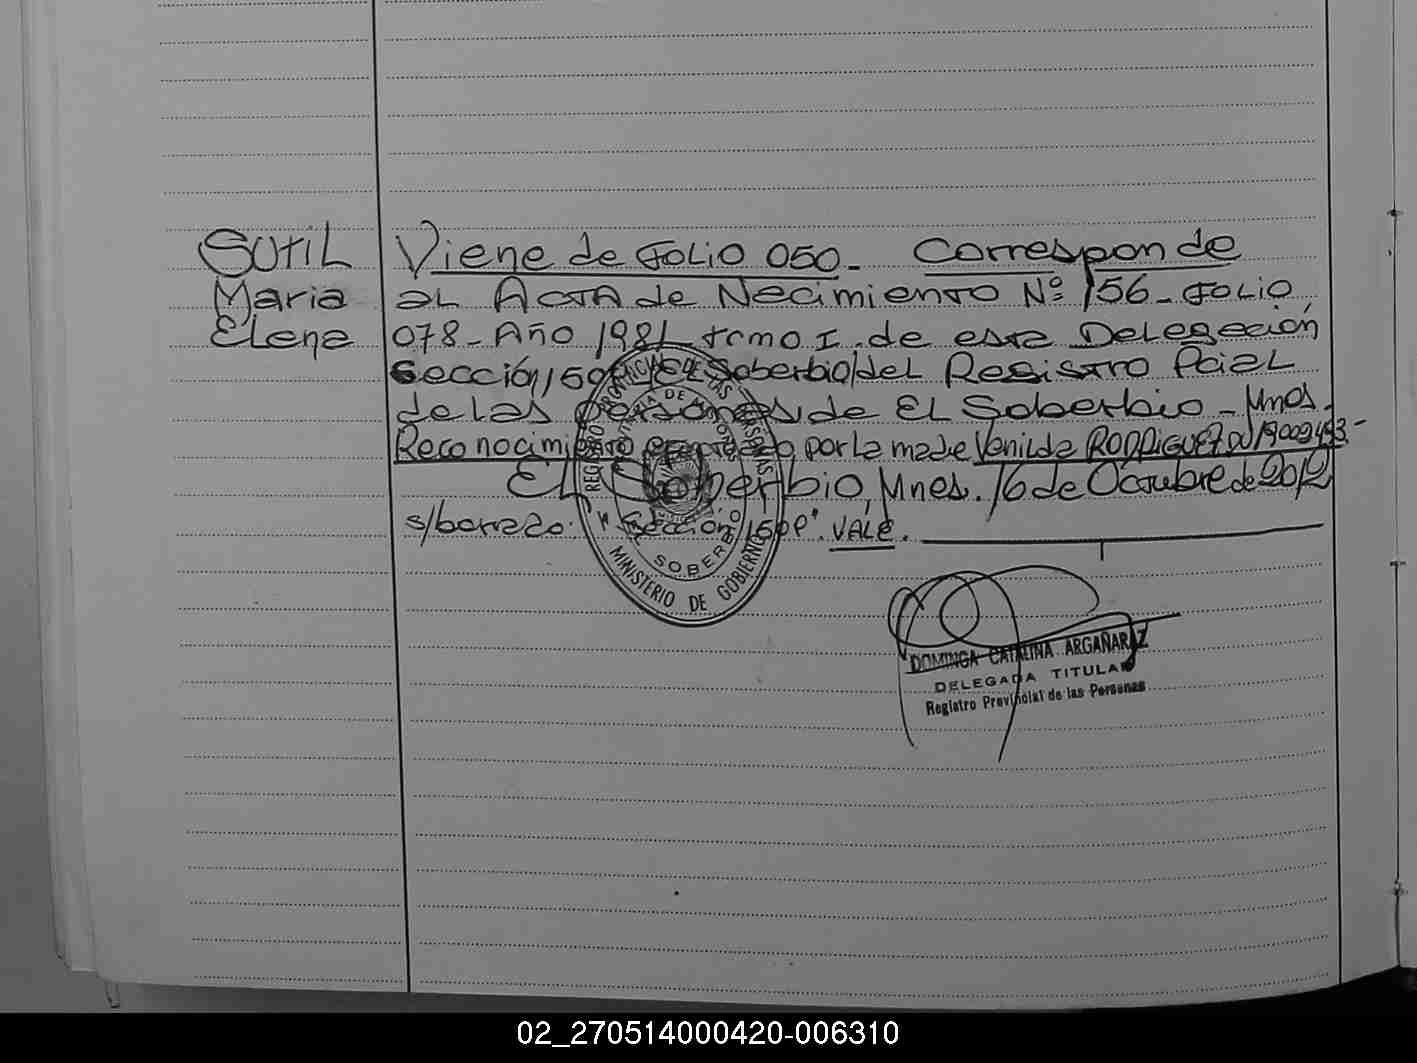 SUTIL
Maria
Elena
Viene de Folio 050_ Corresponde
al Acta de Necimiento Nº 156_ Folio
078_ Año 1981 tomo I. de esta Delegación
Sección 150 "El Soberbio" del Registro Pcial
de las Personas de El Soberbio _ Mnes.
Reconocimiento efectuado por la madre Venilda RODRIGUEZ DU
El Soberbio, Mnes. 16 de Octubre de 2012
s/borrado: "Sección 150ª". VALE.
REGISTRO PROVINCIAL DE LAS PERSONAS
MINISTERIO DE GOBIERNO
SOBERBIO
DOMINGA CATALINA ARGAÑARAZ
DELEGADA TITULAR
Registro Provincial de las Personas
02_270514000420-006310